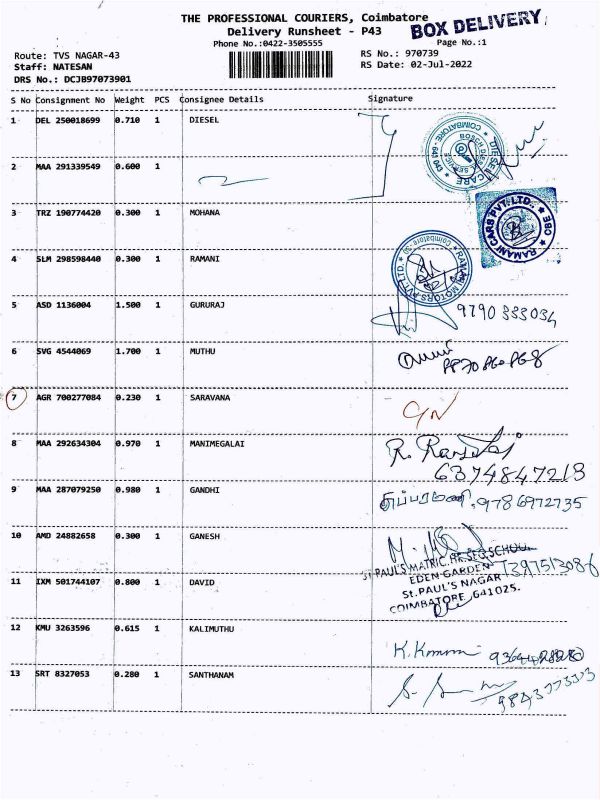 THE PROFESSIONAL COURIERS, Coimbatore
BOX DELIVERY
Delivery Runsheet - P43
Phone No.:0422-3505555
Page No.:1
Route: TVS NAGAR-43
RS No.: 970739
Staff: NATESAN
RS Date: 02-Jul-2022
DRS No.: DCJB97073901
S No Consignment No Weight PCS Consignee Details Signature
1 DEL 250018699 0.710 1 DIESEL
DIESEL CARE COIMBATORE
BOSCH DIESEL SERVICE
2 MAA 291339549 0.600 1
3 TRZ 190774420 0.300 1 MOHANA
RAMANI CARS PVT. LTD.,
4 SLM 298598440 0.300 1 RAMANI
RAMANI MOTORS PVT. LTD. Coimbatore
5 ASD 1136004 1.500 1 GURURAJ
9790 333034
6 SVG 4544069 1.700 1 MUTHU
7 AGR 700277084 0.230 1 SARAVANA
8 MAA 292634304 0.970 1 MANIMEGALAI
6374847213
9 MAA 287079250 0.980 1 GANDHI
9786972735
10 AMD 24882658 0.300 1 GANESH
ST PAUL'S MATRIC.HR.SEC.SCHOOL
EDEN GARDEN
11 IXM 501744107 0.800 1 DAVID
St.PAUL'S NAGAR
COIMBATORE 641025.
12 KMU 3263596 0.615 1 KALIMUTHU
13 SRT 8327053 0.280 1 SANTHANAM